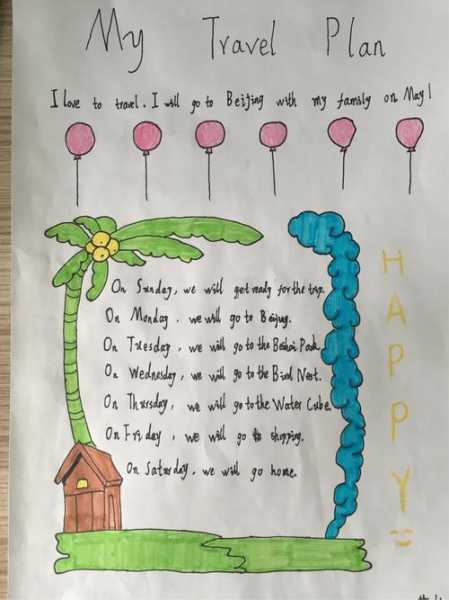 My Travel Plan
I love to travel. I will go to Beijing with my family on May!
On Sunday, we will get ready for the trip.
On Monday, we will go to Beijing.
On Tuesday, we will go to the Beihai Park.
On Wednesday, we will go to the Bird Nest.
On Thursday, we will go to the Water Cube.
On Friday, we will go shopping.
On Saturday, we will go home.
HAPPY